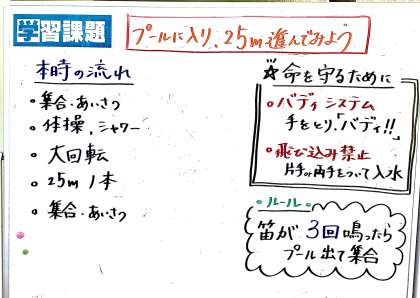 学習課題
プールに入り、25m進んでみよう
本時の流れ
・集合・あいさつ
・体操、シャワー
・大回転
・25m 1本
・集合・あいさつ
☆命を守るために
・バディシステム
手をとり、「バディ!!」
・飛び込み禁止
片手or両手をついて入水
・ルール・
笛が3回鳴ったら
プール出て集合